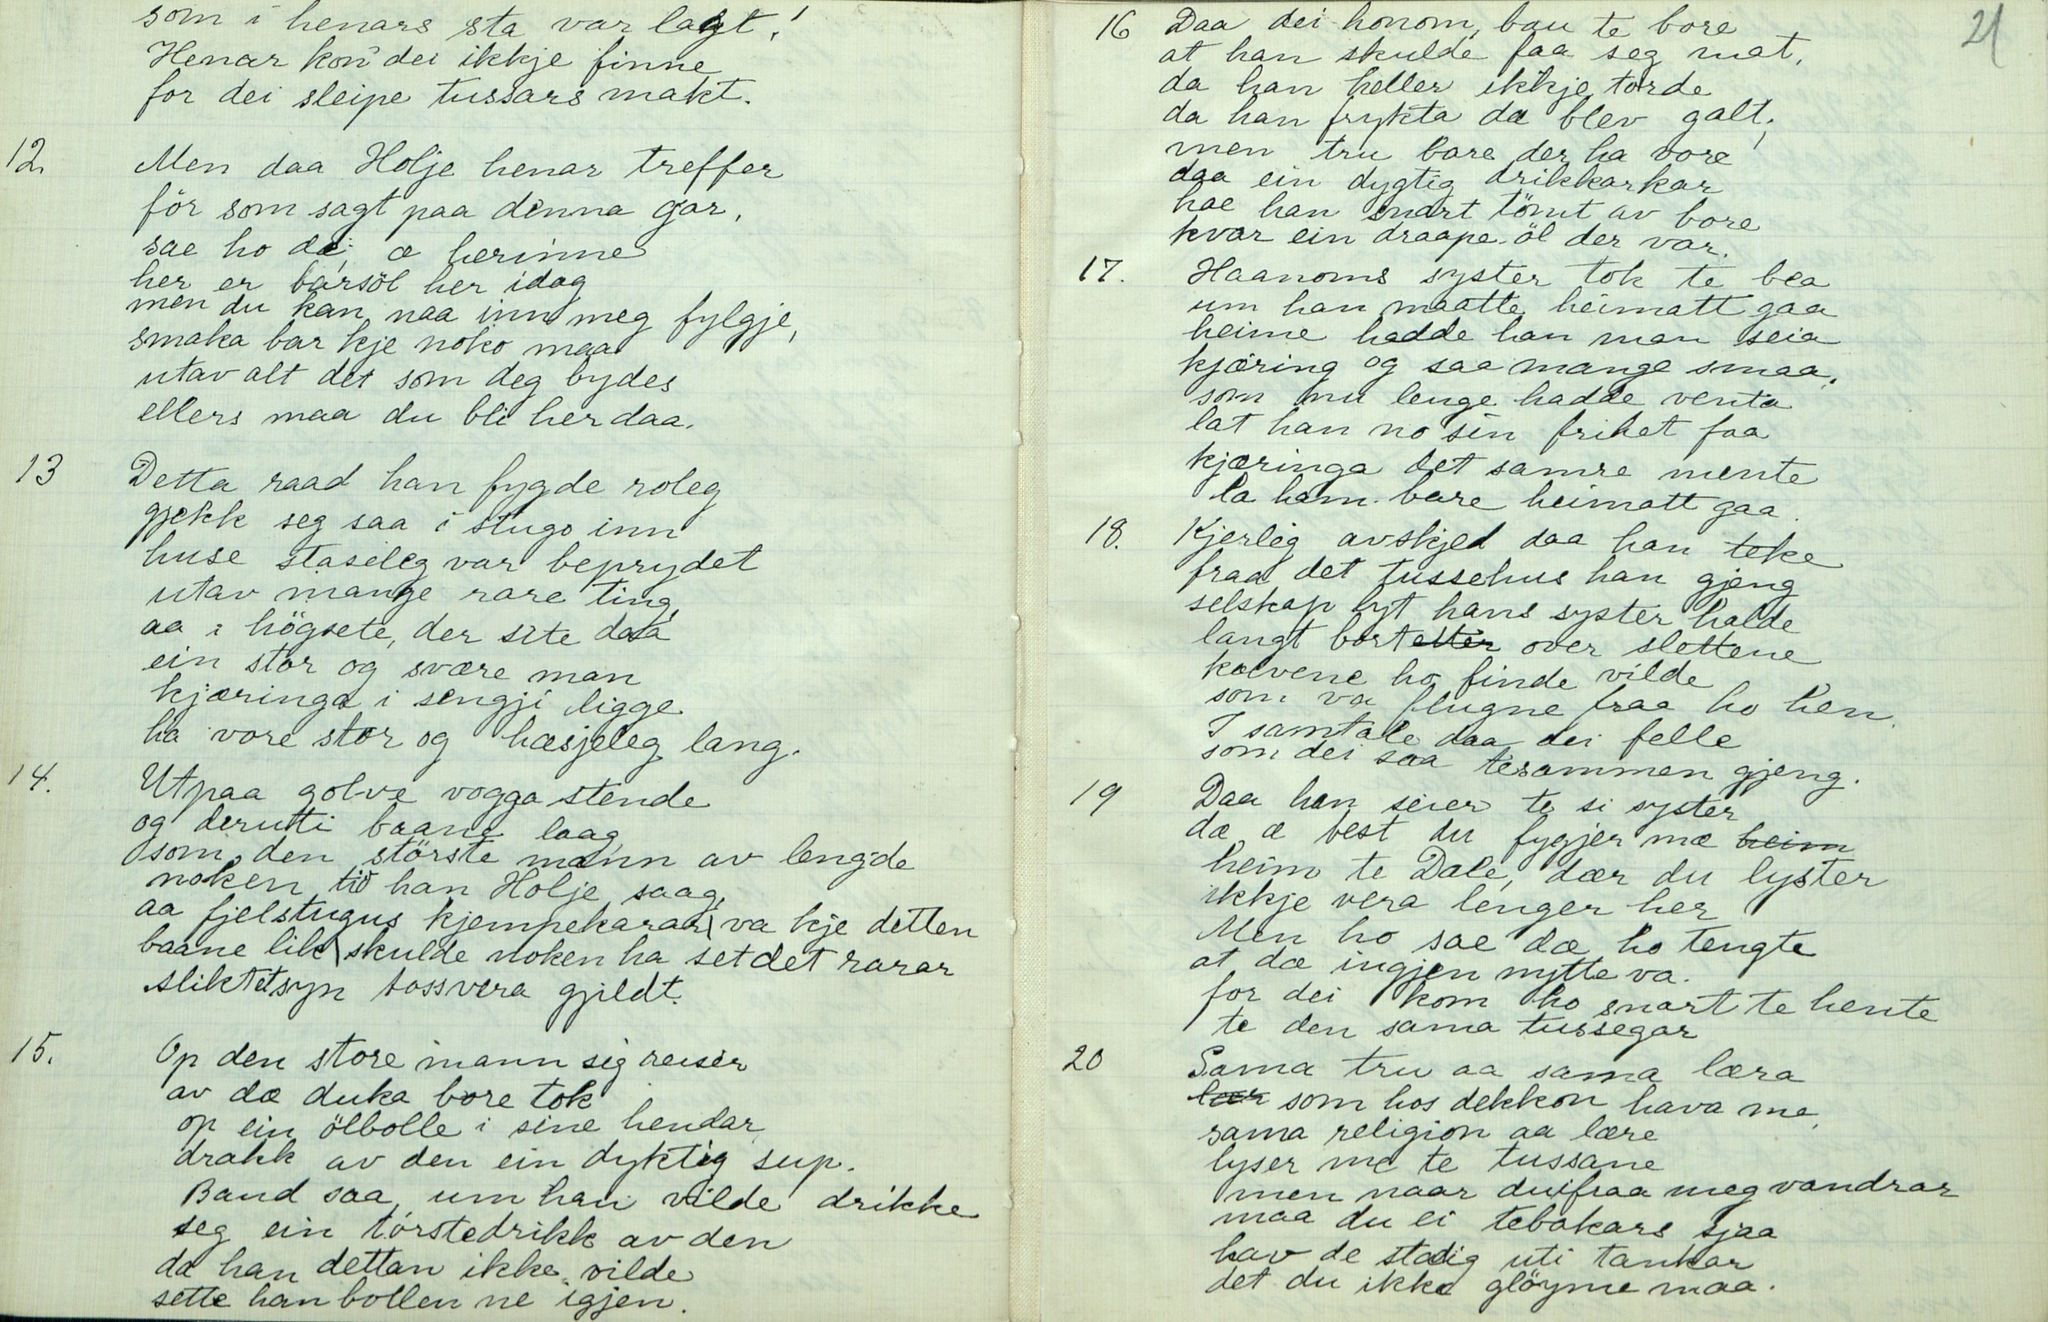 som i henars sta var lagt!
Henar kon dei ikkje finne
for dei sleipe tussars makt.
12. Men daa Holje henar treffer
för som sagt paa denna gar,
sae ho dæ æ herinne
her er barsöl her idag
men du kan naa inn meg fylgje,
smaka bar kje noko maa
utav alt det som deg bydes
ellers maa du bli her daa.
13 Detta raad han fygde roleg
gjekk seg saa i stugo inn
huse staseleg var beprydet
utav mange rare ting,
aa i högsete, der site daa
ein stor og svære man
kjæringa i sengji ligge
ha vore stor og hæsjeleg lang.
14. Utpaa golve vogga stende
og derutti baane laag,
som den störste mann av lengde
noken tid han Holje saag,
aa fjelstugus kjempekarar va kje detten
baane lik skulde noken ha set det rarar
slikt etsyn tossvera gjildt.
15. Op den store mann sig reiser
av dæ duka bore tok
op ein ölbolle i sine hendar
drakk av den ein dyktig sup.
Baud saa um han vilde drikke
seg ein törstedrikk av den
da han dettan ikke vilde
sette han bollen ne igjen.
21
16 Daa dei honom bau te bore
at han skulde faa seg mat,
da han heller ikkje torde
da han frykta da blev galt,
men tru bare der ha vore
daa ein dygtig drikkarkar
hae han snart tömt av bore
kvar ein draape öl der var.
17. Haanoms syster tok te bea
um han maatte heimatt gaa
heime hadde han man seia
kjæring og saa mange smaa,
som nu lenge hadde venta
lat han no sin frihet faa
kjæringa det samre mente
la ham bare heimatt gaa.
18. Kjerlig avskjed daa han teke
fraa det tussehus han gjeng
selskap lyt hans syster halde
langt bort etter over slettene
kalvene ho finde vilde
som va flugne fraa ho hen.
I samtale daa dei felle
som dei saa tesammen gjeng.
19 Daa han seier te si syster
dæ æ best du fygjer mæ heim
heim te Dale, dær du lyster
ikkje vera lenger her
Men ho sae dæ ho tengte
at dæ ingjen nytte va.
for dei kom ho snart te hente
te den sama tussegar
20 Sama tru aa sama læra
lær som hos dekkon hava me,
sama religion aa lære
lyser me te tussane
men naar du ifraa meg vandrar
maa du ei tebakars sjaa
hav de stadig uti tankar
det du ikke glöyme maa.